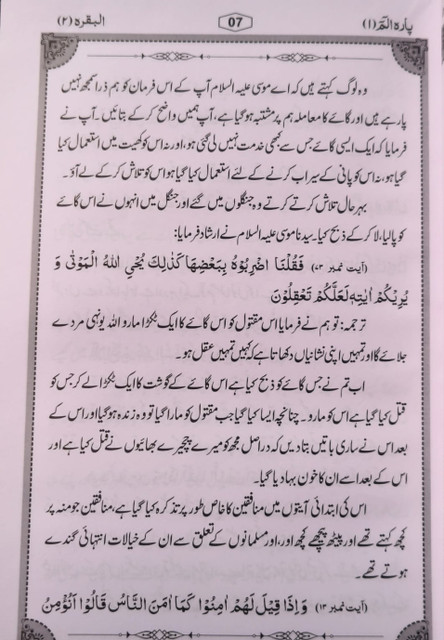 پارہ الٓمّٓ (۱) 07 البقرہ (۲)
وہ لوگ کہتے ہیں کہ اے موسیٰ علیہ السلام آپ کے اس فرمان کو ہم ذرا سمجھ نہیں
پا رہے ہیں اور گائے کا معاملہ ہم پر مشتبہ ہوگیا ہے، آپ ہمیں واضح کرکے بتائیں۔ آپ نے
فرمایا کہ ایک ایسی گائے جس سے کبھی خدمت نہیں لی گئی ہو، اور نہ اس کو کھیت میں استعمال کیا
گیا ہو، نہ اس کو پانی کے سیراب کرنے کے لئے استعمال کیا گیا ہو اس کو تلاش کرکے لے آؤ۔
بہرحال تلاش کرتے کرتے وہ جنگلوں میں گئے اور جنگل میں انہوں نے اس گائے
کو پالیا، لا کر کے ذبح کیا۔ سیدنا موسیٰ علیہ السلام نے ارشاد فرمایا:
(آیت نمبر ۷۳) فَقُلْنَا اضْرِبُوْهُ بِبَعْضِهَا كَذٰلِكَ يُحْيِ اللهُ الْمَوْتٰى وَ
يُرِيْكُمْ اٰيٰتِهٖ لَعَلَّكُمْ تَعْقِلُوْنَ
ترجمہ: تو ہم نے فرمایا اس مقتول کو اس گائے کا ایک ٹکڑا مارو اللہ یونہی مردے
جلائے گا اور تمہیں اپنی نشانیاں دکھاتا ہے کہ کہیں تمہیں عقل ہو۔
اب تم نے جس گائے کو ذبح کیا ہے اس گائے کے گوشت کا ایک ٹکڑا لے کر جس کو
قتل کیا گیا ہے اس کو مارو۔ چنانچہ ایسا کیا گیا جب مقتول کو مارا گیا تو وہ زندہ ہوگیا اور اس کے
بعد اس نے ساری باتیں بتا دیں کہ دراصل مجھ کو میرے چچیرے بھائیوں نے قتل کیا ہے اور
اس کے بعد اسے ان کا خون بہا دیا گیا۔
اس کی ابتدائی آیتوں میں منافقین کا خاص طور پر تذکرہ کیا گیا ہے، منافقین جو منہ پر
کچھ کہتے تھے اور پیٹھ پیچھے کچھ اور، اور مسلمانوں کے تعلق سے ان کے خیالات انتہائی گندے
ہوتے تھے۔
(آیت نمبر ۱۳) وَ اِذَا قِيْلَ لَهُمْ اٰمِنُوْا كَمَا اٰمَنَ النَّاسُ قَالُوْا اَنُؤْمِنُ